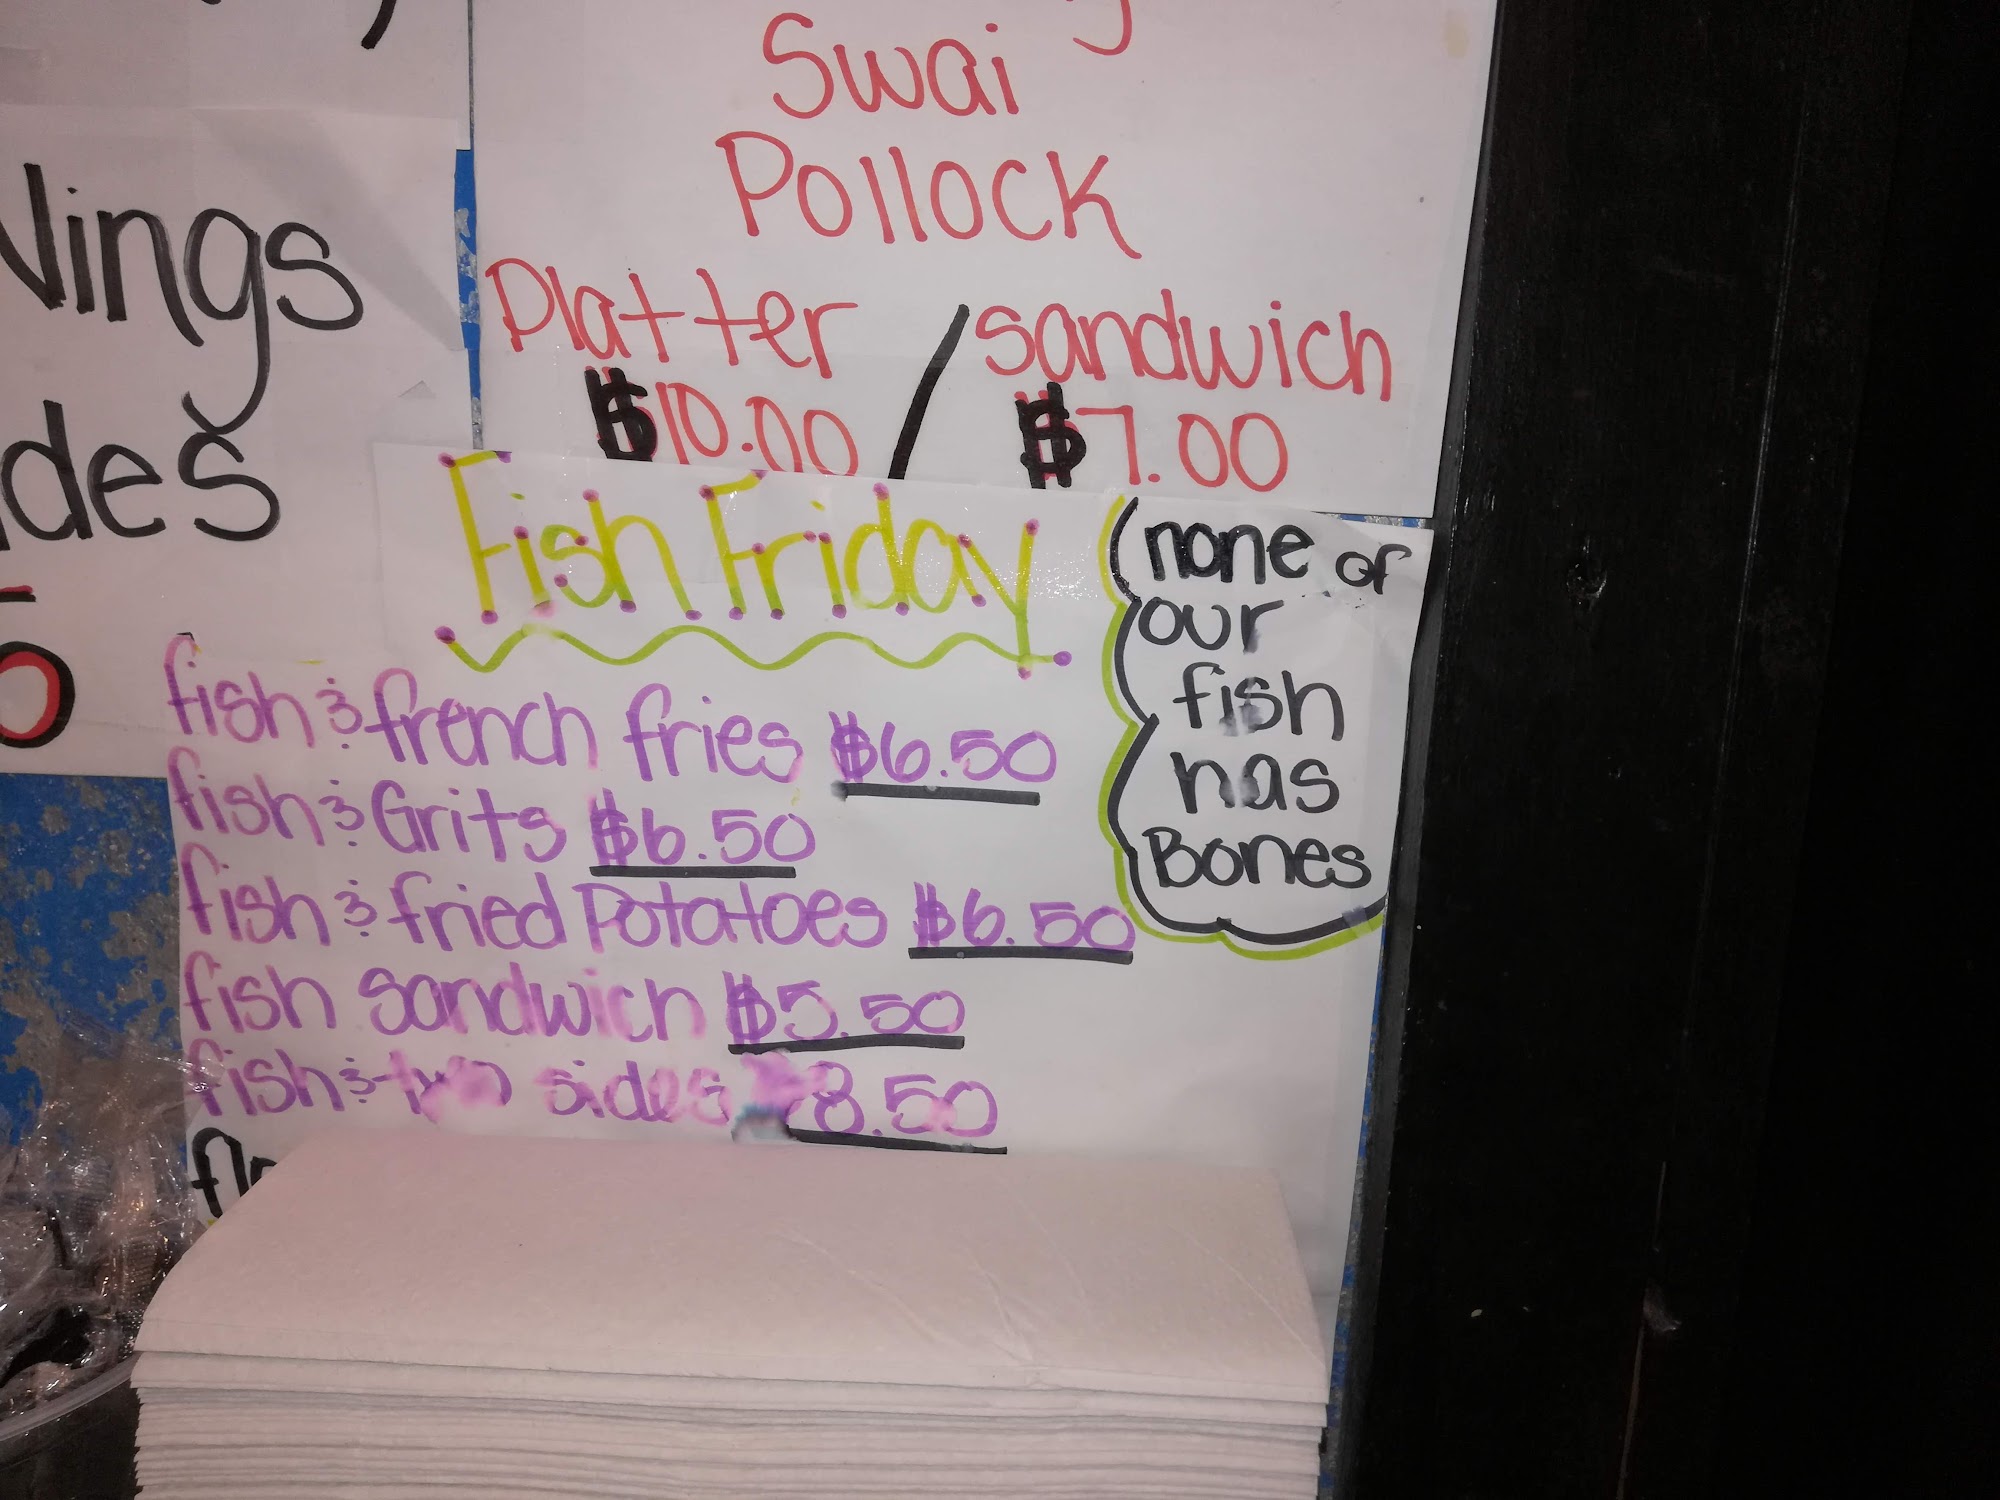 Swai
Pollock
Platter / sandwich
$10.00 $7.00
Fish Friday
fish & french fries $6.50
fish & Grits $6.50
fish & fried Potatoes $6.50
fish sandwich $5.50
fish & two sides $8.50
(none of
our
fish
has
Bones